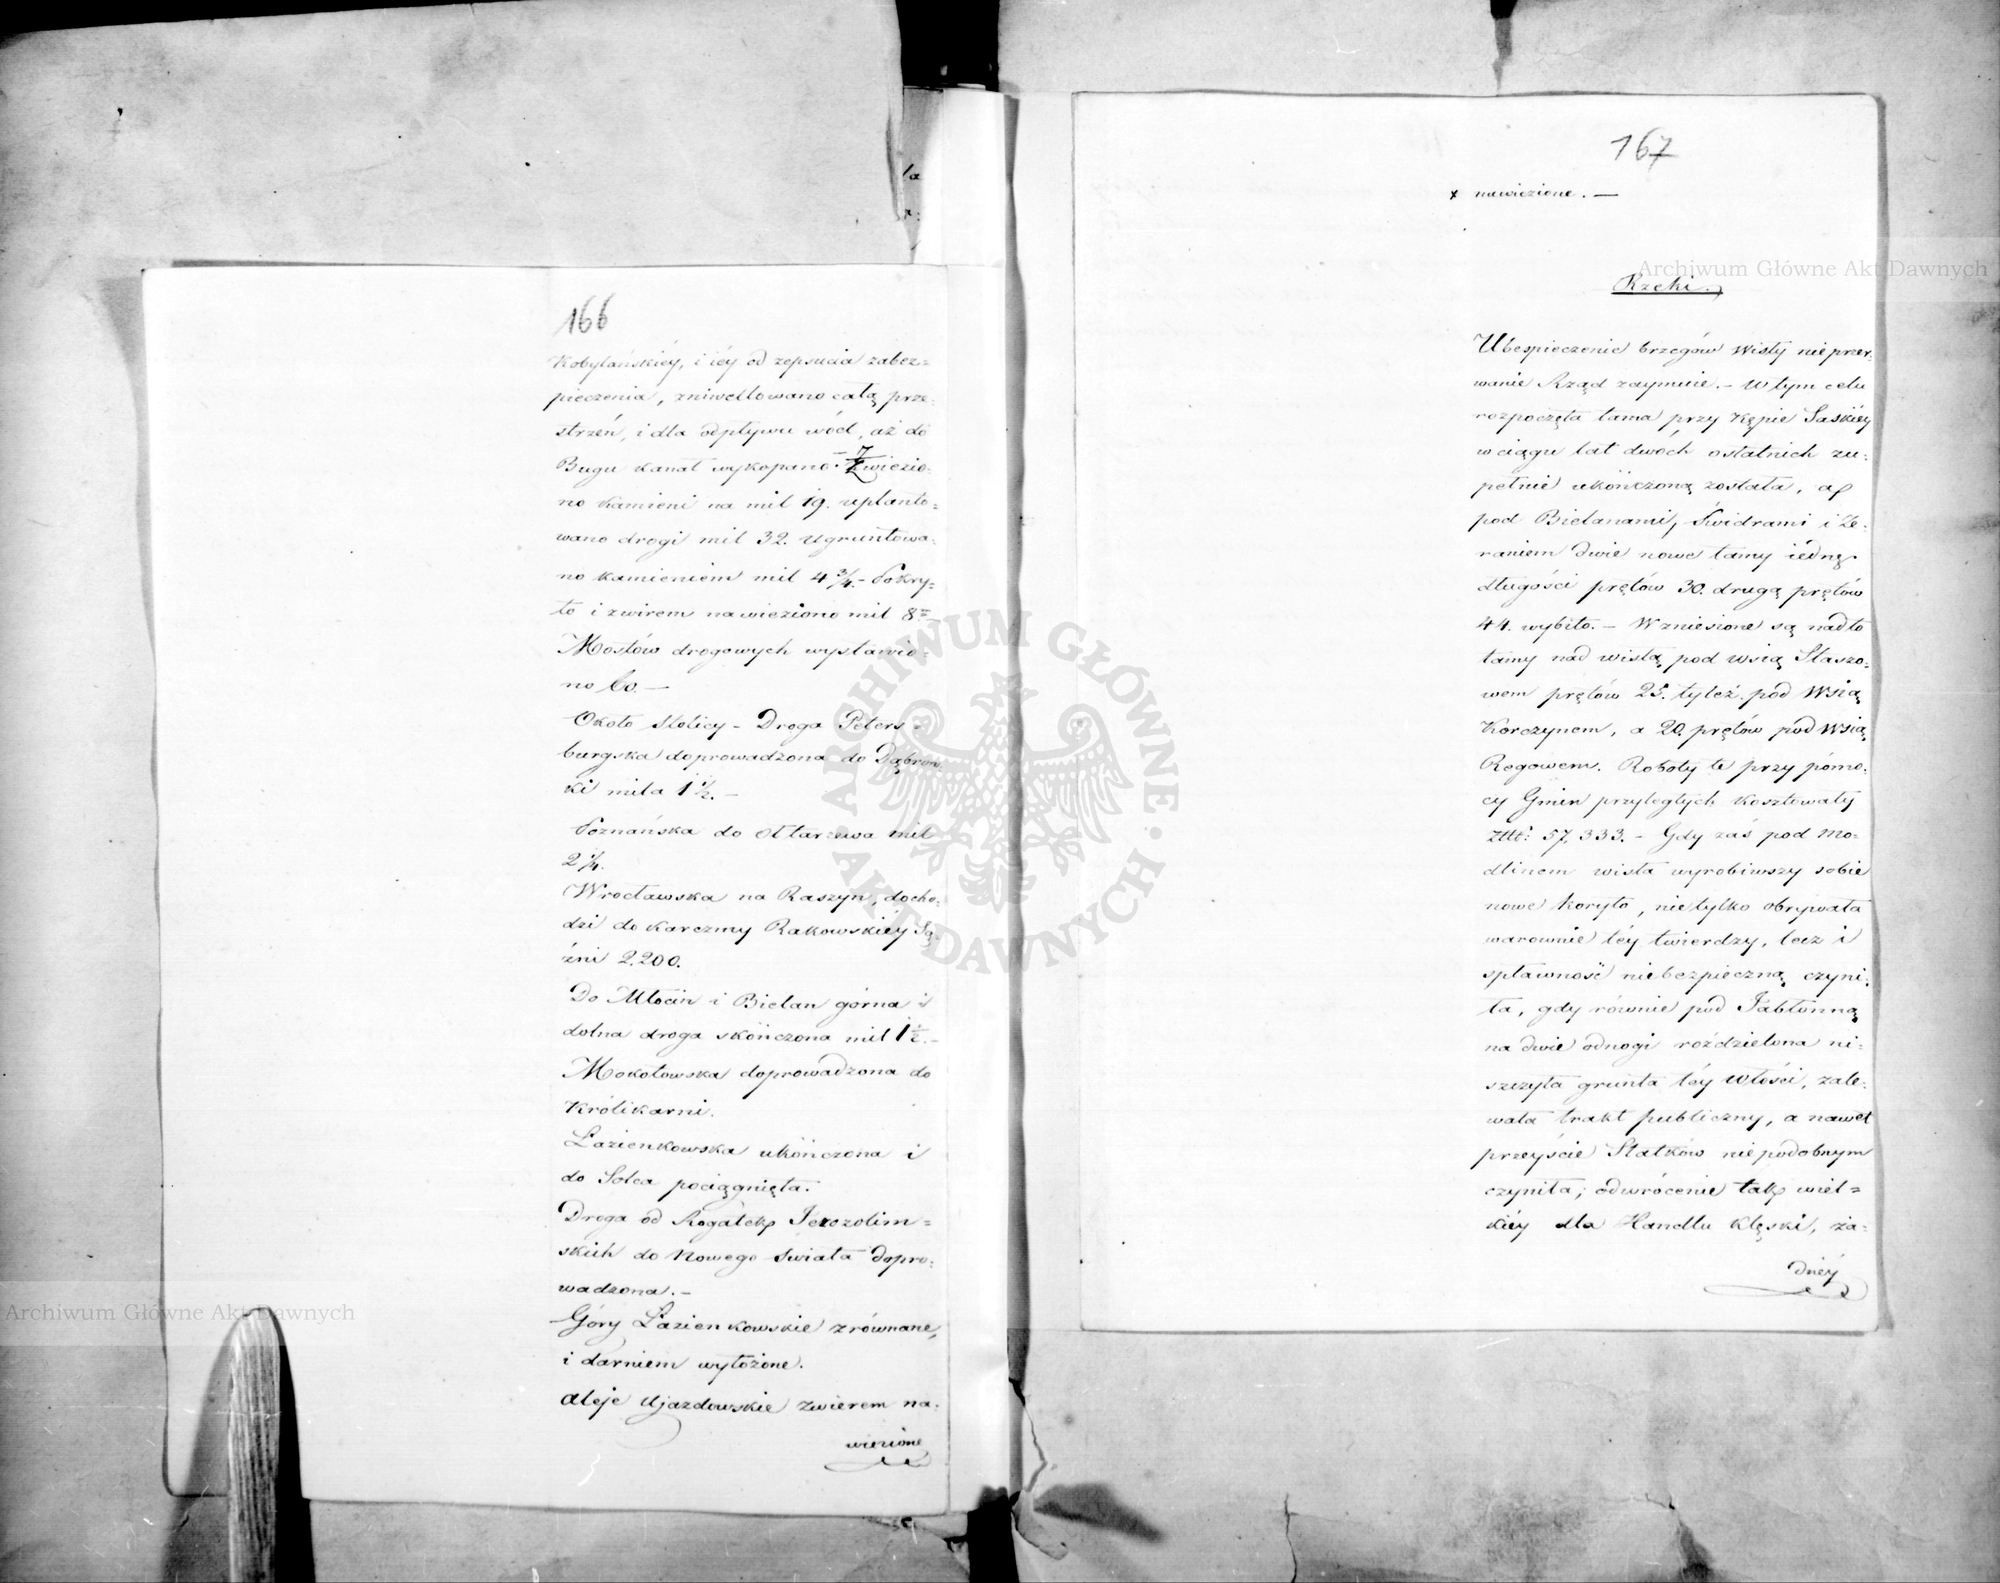 166
Kobylańskiéy, i iéy od zepsucia zabez=
pieczenia, zniwellowano całą prze=
strzeń, i dla odpływu wód, aż do
Bugu kanał wykopano. – Zwiezio=
no kamieni na mil 19. uplanto=
wano drogi mil 32. ugruntowa=
no kamieniem mil 4 3/4. – Pokry=
to i zwirem nawieziono mil 8
Mostów drogowych wystawio=
no 60. –
Około stolicy – Droga Peters=
burgska doprowadzona do Dąbrow=
ki mila 1 1/2. –
Poznańska do Ołtarzewa mil
2 1/4.
Wrocławska na Raszyn, docho=
dzi do karczmy Rakowskiéy Są=
żni 2.200.
Do Młocin i Bielan górna i
dolna droga skończona mil 1 1/2. –
Mokotowska doprowadzona do
Królikarni.
Łazienkowska ukończona i
do Solca pociągnięta.
Droga od Rogatek Jerozolim=
skich do Nowego Swiata dopro=
wadzona. –
Góry Łazienkowskie zrównane,
i darniem wyłożone.
Aleje Ujazdowskie zwierem na=
wiezione
167
x nawiezione. –
Rzeki.
Ubespieczenie brzegów Wisły nieprzer=
wanie Rząd zaymuie. – W tym celu
rozpoczęta tama przy Kępie Saskiéy
w ciągu lat dwóch ostatnich zu=
pełnie ukończoną została, a
pod Bielanami, Świdrami i Że=
raniem dwie nowe tamy iedną
długości prętów 30. drugą prętów
44. wybito. – Wzniesione są nadto
tamy nad wisłą pod wsią Staszo=
wem prętów 25. tyleż pod Wsią
Korczynem, a 20. prętów pod Wsią
Rogowem. Roboty te przy pomo=
cy Gmin przyległych kosztowały
Złłt: 57,333. – Gdy zaś pod Mo=
dlinem wisła wyrobiwszy sobie
nowe koryto, nietylko obrywała
warownie téy twierdzy, lecz i
spławność niebezpieczną czyni=
ła, gdy równie pod Jabłonną
na dwie odnogi rozdzielona ni=
szczyła grunta téy włości, zale=
wała trakt publiczny, a nawet
przeyście Statków niepodobnym
czyniła; odwrócenie tak wiel=
kiéy dla Handlu klęski, ża=
dnéy
Archiwum Główne Akt Dawnych
Archiwum Główne Akt Dawnych
ARCHIWUM GŁÓWNE · AKT DAWNYCH ·